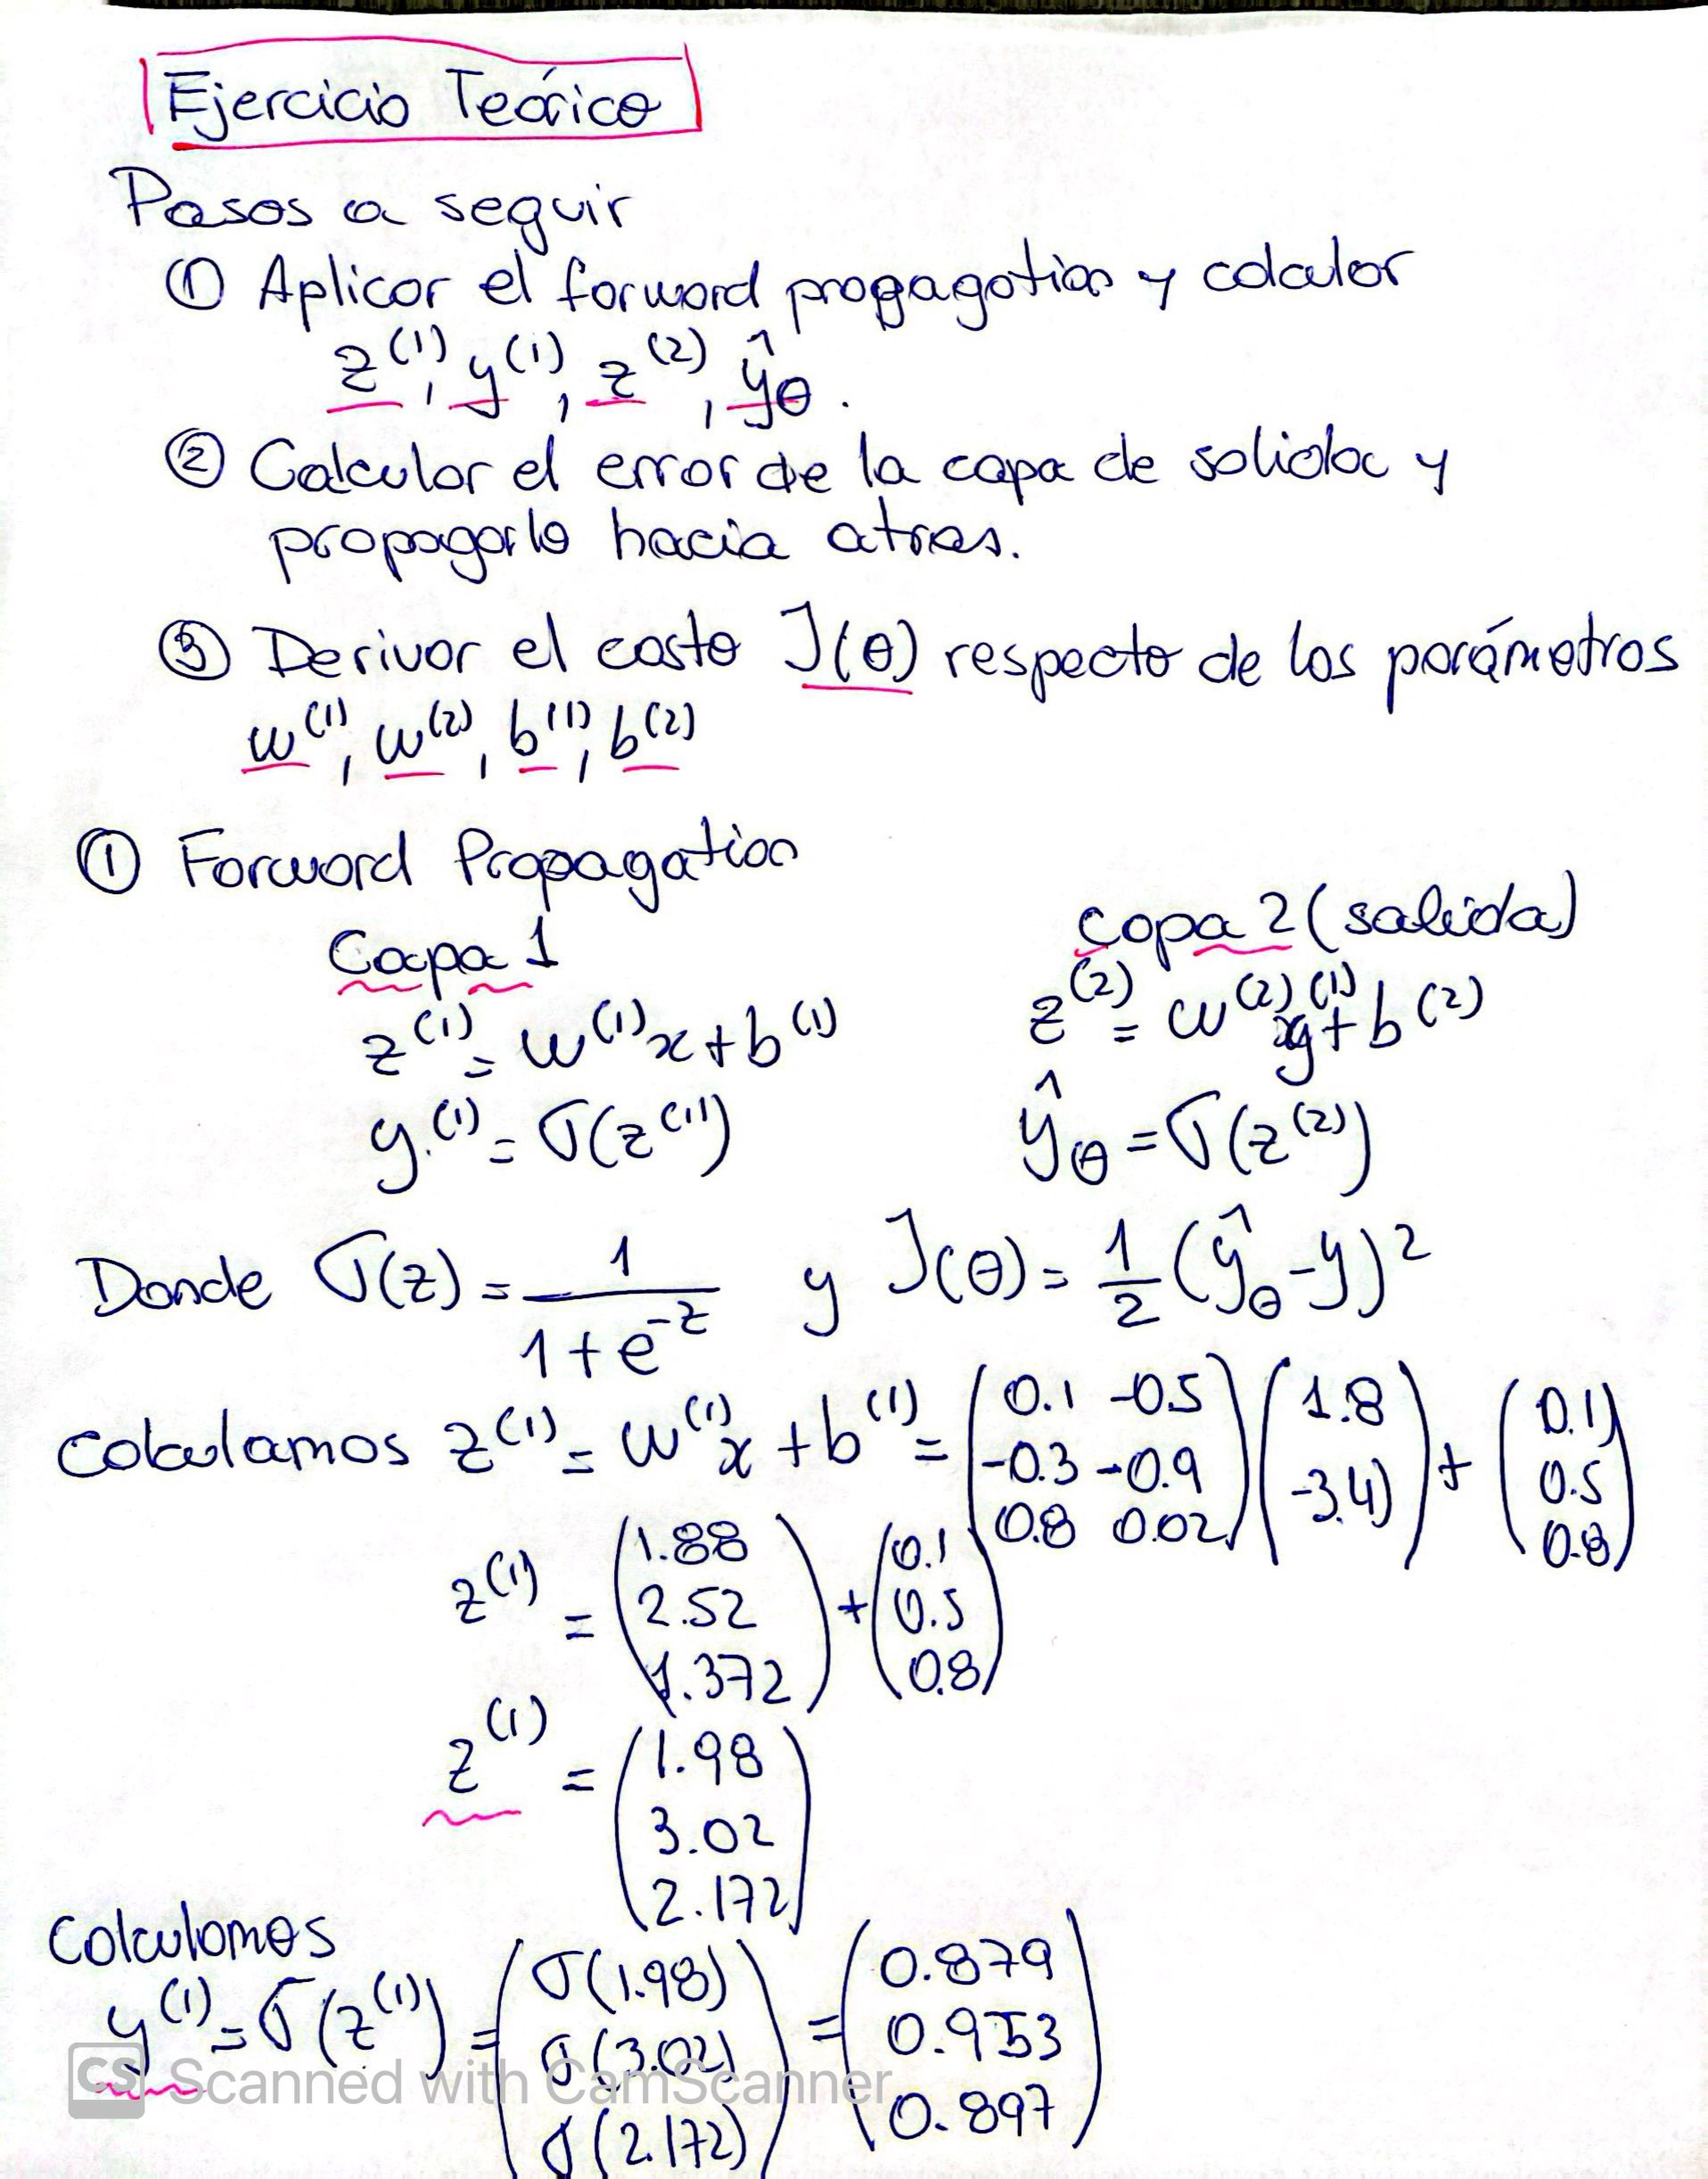 Ejercicio Teórico
Pasos a seguir
① Aplicar el forword propagation y calcular
z^(1), y^(1), z^(2), ŷ_θ.
② Calcular el error de la capa de salida y
propagarlo hacia atras.
③ Derivar el costo J(θ) respecto de los parámetros
w^(1), w^(2), b^(1), b^(2)
① Forword Propagation
Capa 1
z^(1) = w^(1)x + b^(1)
y^(1) = σ(z^(1))
Capa 2 (salida)
z^(2) = w^(2) y^(1) + b^(2)
ŷ_θ = σ(z^(2))
Donde σ(z) = 1 / (1 + e^-z) y J(θ) = 1/2 (ŷ_θ - y)^2
Calculamos z^(1) = w^(1)x + b^(1) = (0.1 -0.5 / -0.3 -0.9 / 0.8 0.02) (1.8 / -3.4) + (0.1 / 0.5 / 0.8)
z^(1) = (1.88 / 2.52 / 1.372) + (0.1 / 0.5 / 0.8)
z^(1) = (1.98 / 3.02 / 2.172)
Calculamos
y^(1) = σ(z^(1)) = (σ(1.98) / σ(3.02) / σ(2.172)) = (0.879 / 0.953 / 0.897)
CS Scanned with CamScanner